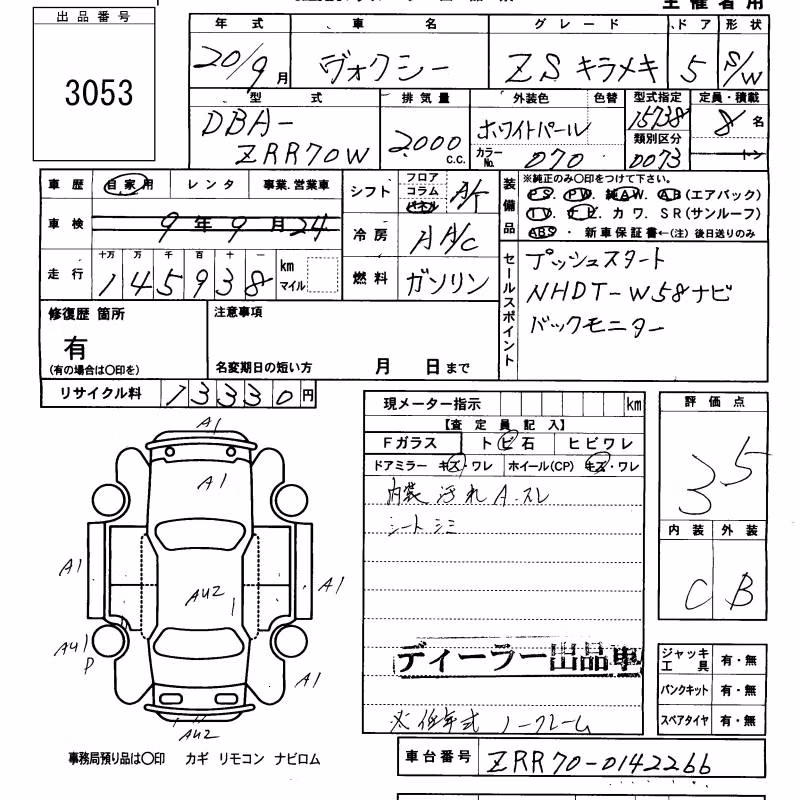 主催者用
出品番号
3053
年式 車名 グレード ドア 形状
20/9月 ヴォクシー ZS キラメキ 5 S/W
型式 排気量 外装色 色替 型式指定 定員・積載
DBA-ZRR70W 2000 c.c. ホワイトパール 15738 8名
カラーNo. 070 類別区分 0073 トン
車歴 自家用 レンタ 事業.営業車 シフト フロア コラム パネル A/T
装備品 ※純正のみ〇印をつけて下さい。
PS. PW. 純AW. AB(エアバック)
TV. カワ. SR(サンルーフ)
ABS・新車保証書←(注)後日送りのみ
車検 9年9月24 冷房 AA/C
走行 十万 万 千 百 十 一
145938 km マイル 燃料 ガソリン
セールスポイント プッシュスタート
NHDT-W58ナビ
バックモニター
修復歴 箇所 注意事項
有
(有の場合は〇印を) 名変期日の短い方 月 日まで
リサイクル料 13330円
現メーター指示 km
【査定員記入】
Fガラス トビ石 ヒビワレ
ドアミラー キズ・ワレ ホイール(CP) キズ・ワレ
内装 汚れ A.スレ
シート シミ
評価点
3.5
内装 外装
C B
A1
A1
A1
AU2
A1
AU1
P
A1
AU2
ディーラー出品車
※低年式 ノークレーム
ジャッキ工具 有・無
パンクキット 有・無
スペアタイヤ 有・無
事務局預り品は〇印 カギ リモコン ナビロム
車台番号 ZRR70-0142266